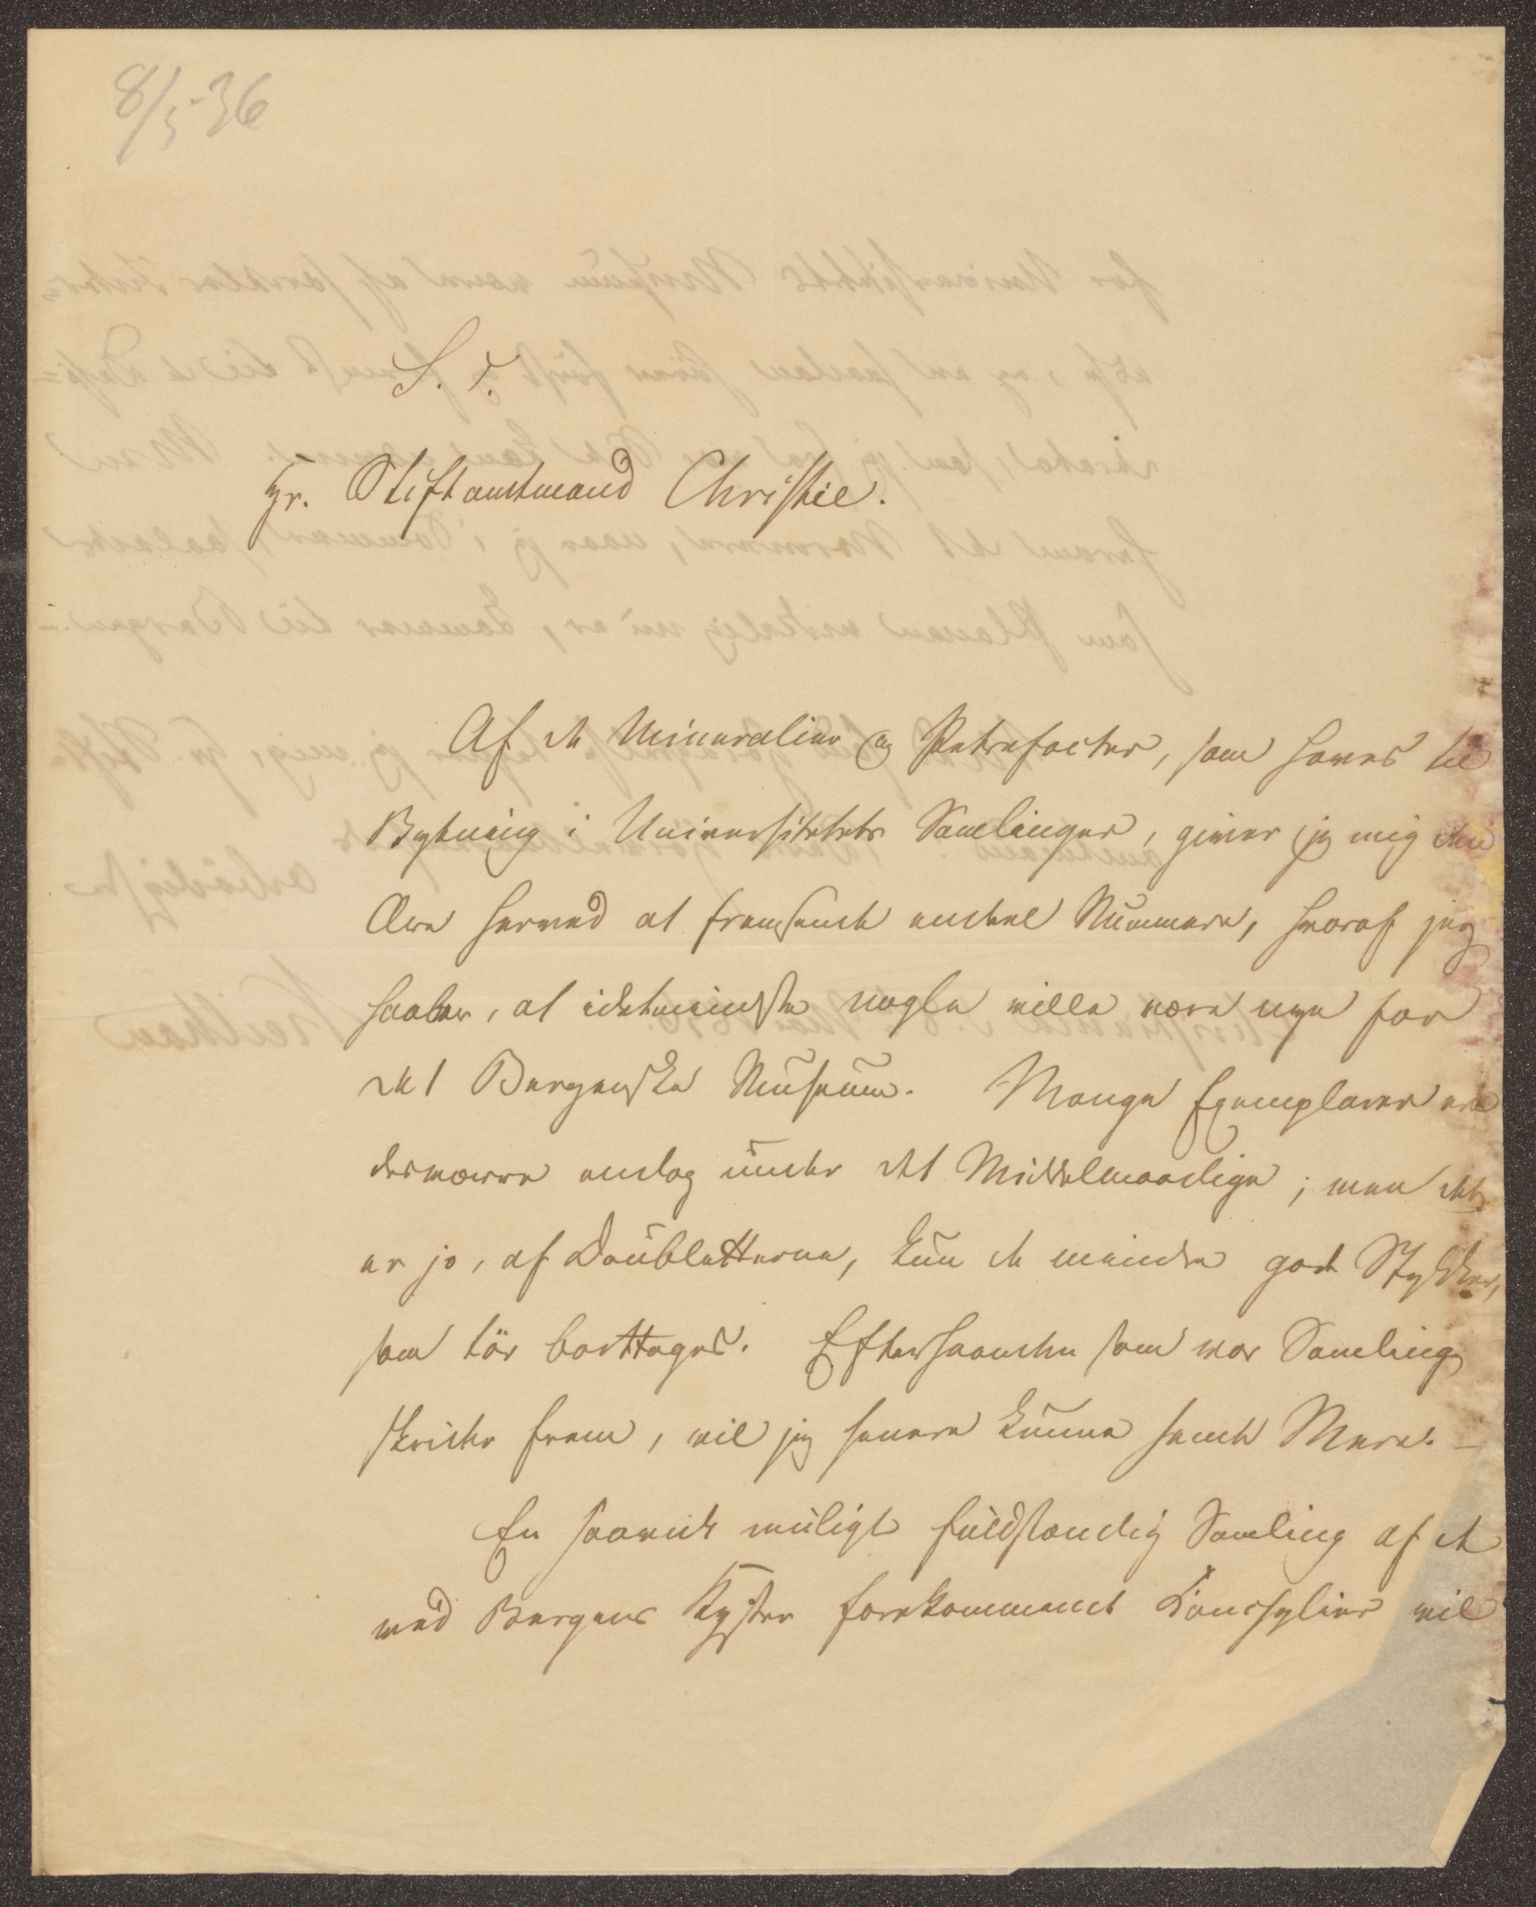 8/5-36
S. T.
Hr. Stiftamtmand Christie.
Af de Mineralier og Petrefacter, som haves til
Bytning i Universitetets Samlinger, giver jeg mig den
Ære herved at fremsende endeel Nummere, hvoraf jeg
haaber, at idetmindste nogle ville være nye for
det Bergenske Museum. Mange Exemplarer ere
desværre endog under det Middelmaadige; men det
er jo, af Doubletterne, kun de mindre gode Stykker,
som tör borttages. Efterhaanden som vor Samling
skrider frem, vil jeg senere kunne sende Mere. -
En saavidt muligt fuldstændig Samling af de
ved Bergens Kyster forekommende Conchylier vil